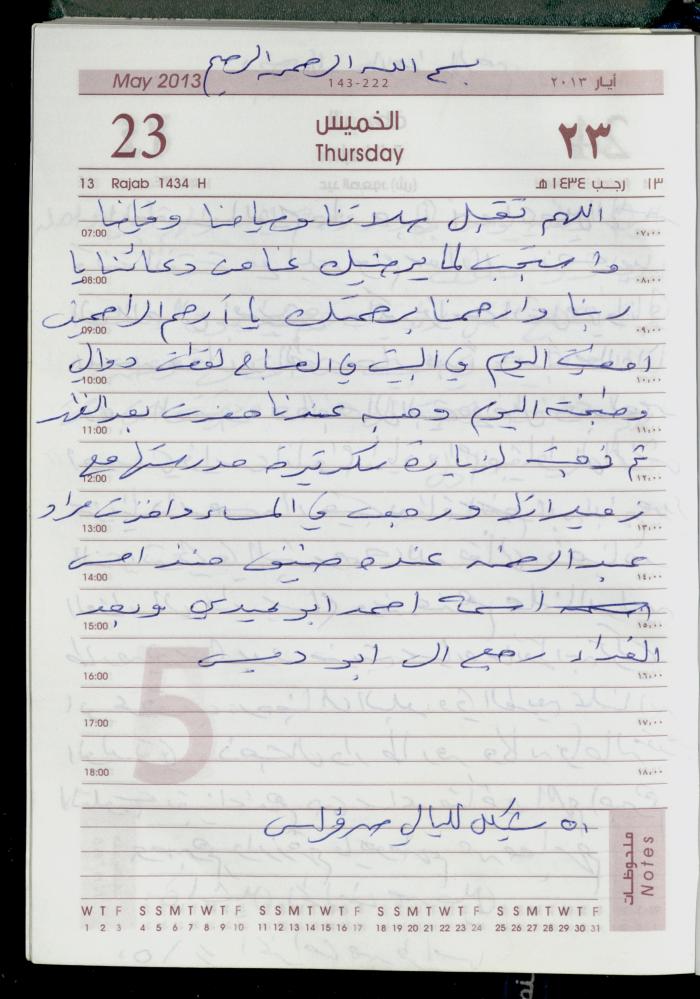 بسم الله الرحمن الرحيم
May 2013 143-222 أيار ٢٠١٣
23 الخميس Thursday ٢٣
13 Rajab 1434 H ١٣ رجب ١٤٣٤ هـ
اللهم تقبل صلاتنا وصيامنا وقيامنا
07:00 ٠٧,٠٠
واستجب لما يرضيك عنا من دعائنا يا
08:00 ٠٨,٠٠
ربنا وارحمنا برحمتك يا أرحم الراحمين
09:00 ٠٩,٠٠
امضيت اليوم في البيت في الصباح لقطت دوالي
10:00 ١٠,٠٠
وطبخته اليوم وهبه عندنا حضرت بعد الظهر
11:00 ١١,٠٠
ثم ذهبت لزيارة سكرتيرة مدرستها مع
12:00 ١٢,٠٠
زميلاتها ورجعت في المساء واخذت مراد
13:00 ١٣,٠٠
عبد الرحمن عنده ضيف منذ امس
14:00 ١٤,٠٠
اسمه احمد ابو عيدي وبعد
15:00 ١٥,٠٠
الغداء رجع الى ابو ديس
16:00 ١٦,٠٠
5
17:00 ١٧,٠٠
18:00 ١٨,٠٠
٥١ شيكل لليالي مصروف
ملحوظات Notes
W T F S S M T W T F S S M T W T F S S M T W T F S S M T W T F
1 2 3 4 5 6 7 8 9 10 11 12 13 14 15 16 17 18 19 20 21 22 23 24 25 26 27 28 29 30 31